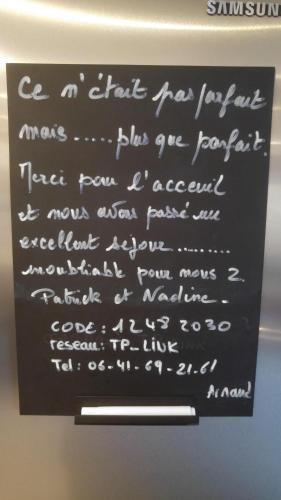 SAMSUN
Ce n'était pas parfait
mais ..... plus que parfait.
Merci pour l'acceuil
et nous avons passé un
excellent séjour.........
inoubliable pour nous 2.
Patrick et Nadine.
CODE : 1248 2030
reseau: TP_LINK
Tel : 06-41-69-21-61
Arnaud